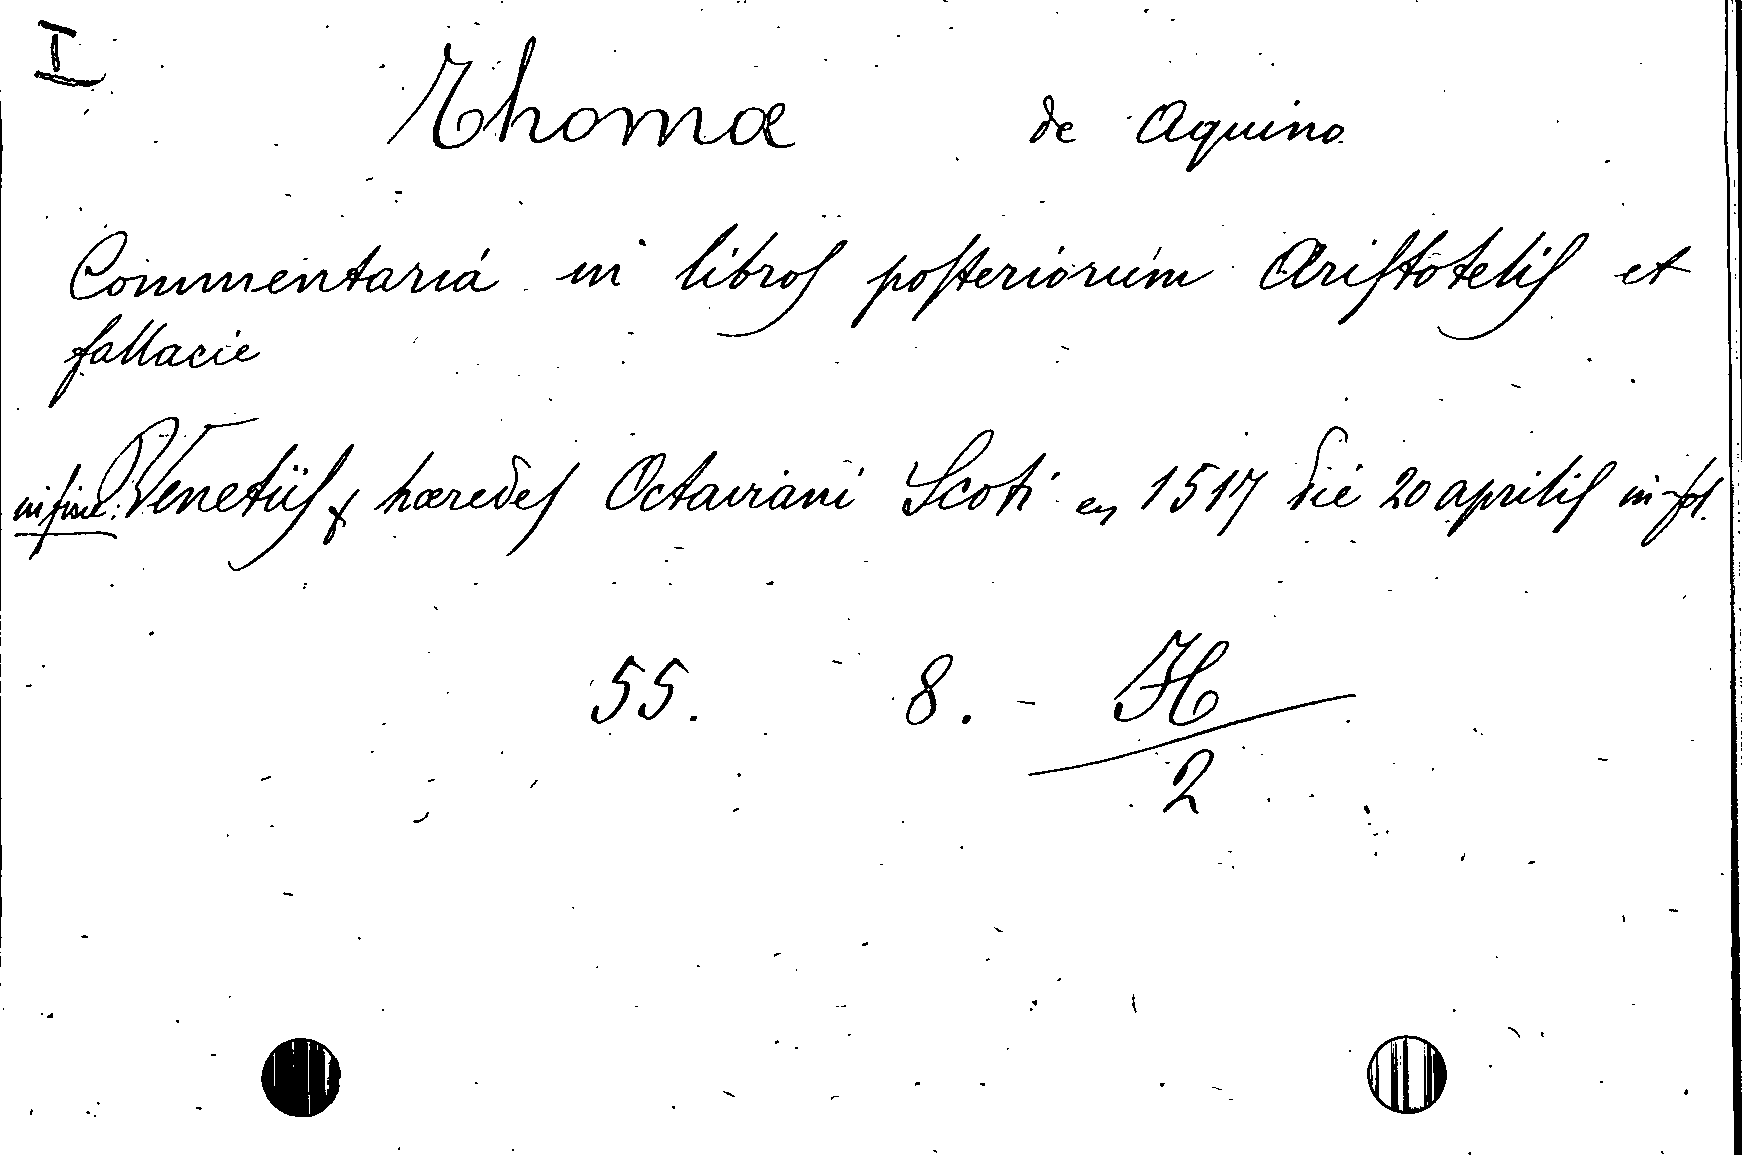 I
Thomæ de Aquino
Commentaria in libros posteriorum Aristotelis et
fallacie
in fine: Venetiis hæredes Octaviani Scoti 1517 die 20 aprilis in-fol.
55. 8. - H
2